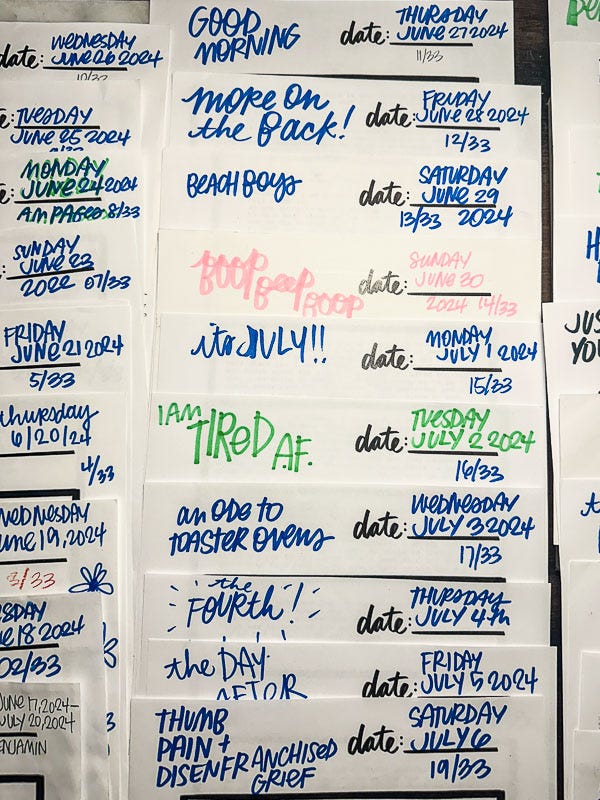 WEDNESDAY
date: JUNE 26 2024
10/33
TUESDAY
JUNE 25 2024
MONDAY
JUNE 24 2024
AM PAGES 8/33
SUNDAY
JUNE 23
2022 07/33
FRIDAY
JUNE 21 2024
5/33
thursday
6/20/24
4/33
WEDNESDAY
June 19, 2024
3/33
18 2024
02/33
JUNE 17, 2024-
JULY 20, 2024
GOOD
MORNING
date: THURSDAY
JUNE 27 2024
11/33
more on
the back!
date: FRIDAY
JUNE 28 2024
12/33
BEACH BOYS
date: SATURDAY
JUNE 29
13/33 2024
BOOP BEEP BOOP
date: SUNDAY
JUNE 30
2024 14/33
its JULY!!
date: MONDAY
JULY 1 2024
15/33
I AM
TIRED A.F.
date: TUESDAY
JULY 2 2024
16/33
an ODE to
TOASTER OVENS
date: WEDNESDAY
JULY 3 2024
17/33
the
FOURTH!
date: THURSDAY
JULY 4th
the DAY
AFTER
date: FRIDAY
JULY 5 2024
THUMB
PAIN +
DISENFRANCHISED
GRIEF
date: SATURDAY
JULY 6
19/33